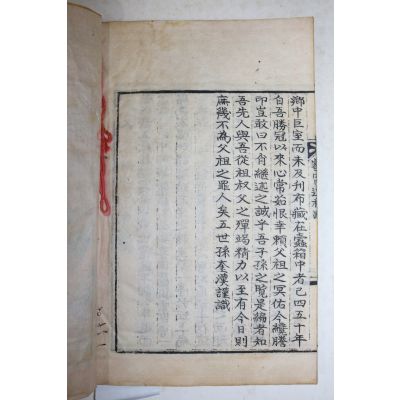 鄉中巨室而未及刊布藏在蠹箱中者已四五十年
自吾勝冠以來心常如恨幸賴父祖之冥佑今纔謄
印豈敢曰不肖繼述之誠乎吾子孫之覽是編者如
吾先人與吾從祖叔父之殫竭精力以至有今日則
庶幾不爲父祖之罪人矣五世孫奎漢謹識